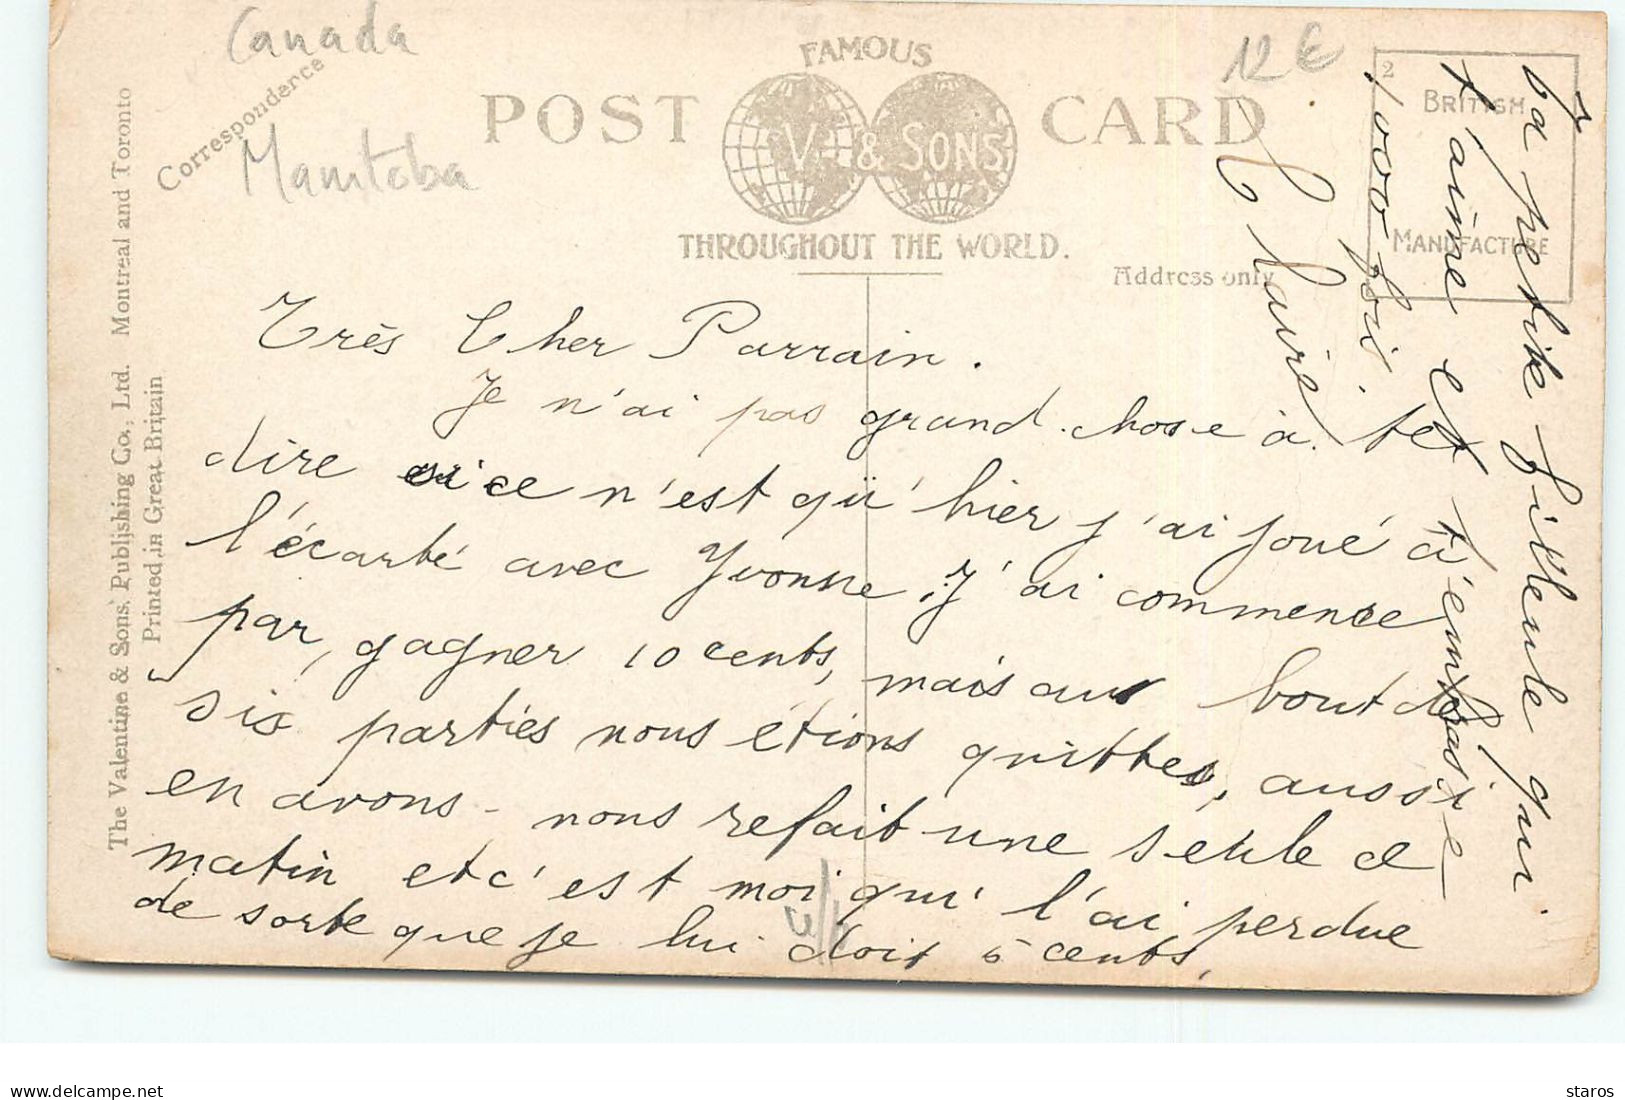 Canada
Manitoba
12 €
Correspondence
FAMOUS
POST CARD
V. & SONS
THROUGHOUT THE WORLD.
Address only
2
BRITISH
MANUFACTURE
The Valentine & Sons' Publishing Co., Ltd. Montreal and Toronto
Printed in Great Britain
Très Cher Parrain.
Je n'ai pas grand chose à te
dire si ce n'est qu'hier j'ai joué à
l'écarté avec Yvonne. J'ai commence
par, gagner 10 cents, mais au bout de
six parties nous étions quittes, aussi
en avons-nous refait une seule ce
matin et c'est moi qui l'ai perdue
de sorte que je lui doit 5 cents.
Ta petite filleule qui
t'aime et t'embrasse
1000 fois.
Claire